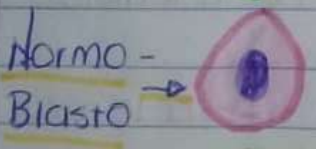 Normo-
Blasto